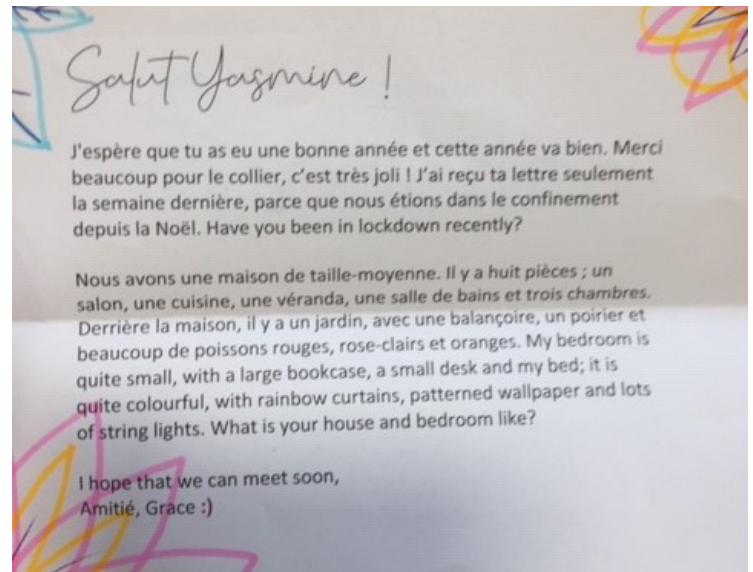 Salut Yasmine !
J'espère que tu as eu une bonne année et cette année va bien. Merci
beaucoup pour le collier, c'est très joli ! J'ai reçu ta lettre seulement
la semaine dernière, parce que nous étions dans le confinement
depuis la Noël. Have you been in lockdown recently?
Nous avons une maison de taille-moyenne. Il y a huit pièces ; un
salon, une cuisine, une véranda, une salle de bains et trois chambres.
Derrière la maison, il y a un jardin, avec une balançoire, un poirier et
beaucoup de poissons rouges, rose-clairs et oranges. My bedroom is
quite small, with a large bookcase, a small desk and my bed; it is
quite colourful, with rainbow curtains, patterned wallpaper and lots
of string lights. What is your house and bedroom like?
I hope that we can meet soon,
Amitié, Grace :)